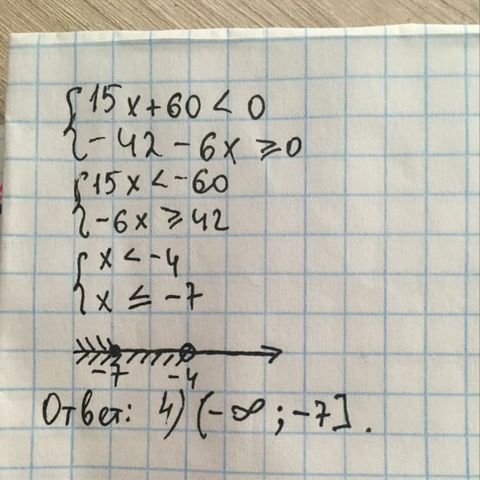 { 15x + 60 < 0
{ -42 - 6x ≥ 0
{ 15x < -60
{ -6x ≥ 42
{ x < -4
{ x ≤ -7
-7 -4
Ответ: 4) (-∞; -7].